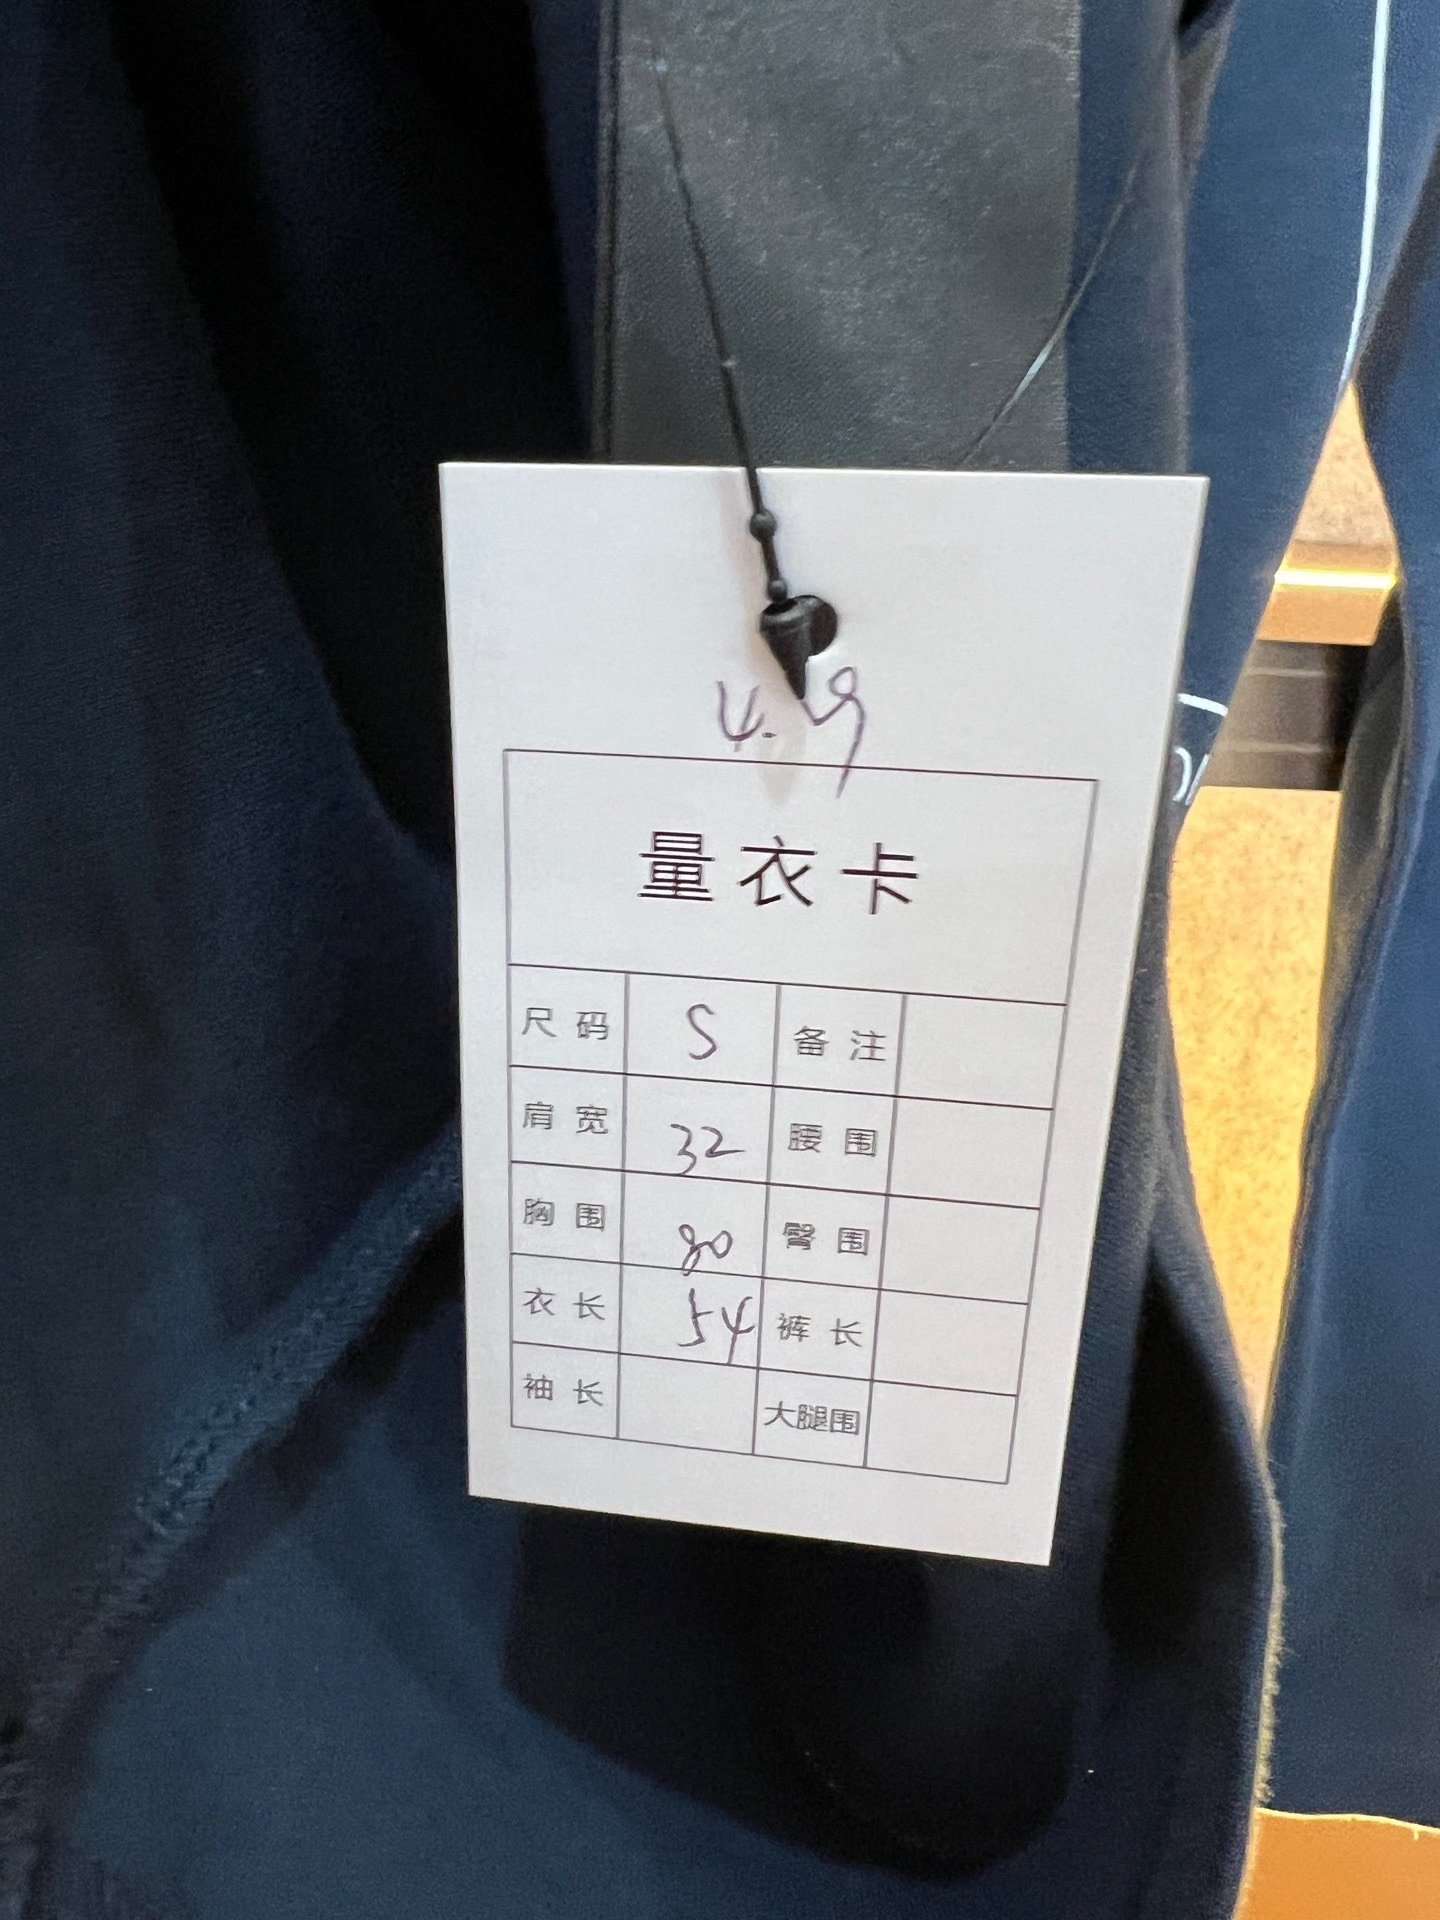 4.9
量衣卡
尺码 S 备注
肩宽 32 腰围
胸围 80 臀围
衣长 54 裤长
袖长 大腿围